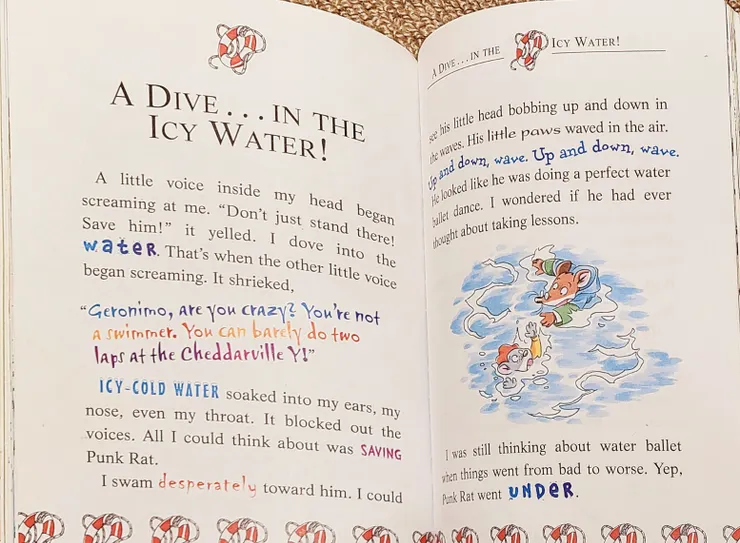 A DIVE... IN THE
ICY WATER!
A little voice inside my head began
screaming at me. "Don't just stand there!
Save him!" it yelled. I dove into the
water. That's when the other little voice
began screaming. It shrieked,
"Geronimo, are you crazy? You're not
a swimmer. You can barely do two
laps at the Cheddarville Y!"
ICY-COLD WATER soaked into my ears, my
nose, even my throat. It blocked out the
voices. All I could think about was SAVING
Punk Rat.
I swam desperately toward him. I could
A DIVE... IN THE ICY WATER!
see his little head bobbing up and down in
the waves. His little paws waved in the air.
Up and down, wave. Up and down, wave.
He looked like he was doing a perfect water
ballet dance. I wondered if he had ever
thought about taking lessons.
I was still thinking about water ballet
when things went from bad to worse. Yep,
Punk Rat went UNDER.